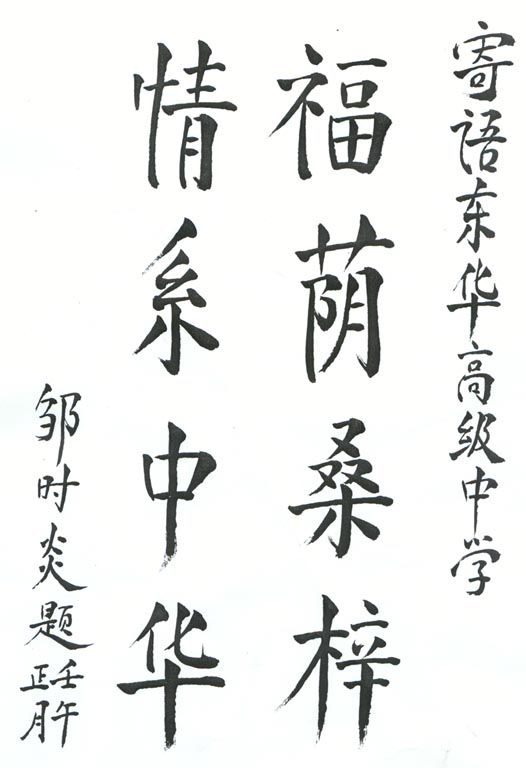 寄语东华高级中学
福荫桑梓
情系中华
邹时炎题
壬午
正月